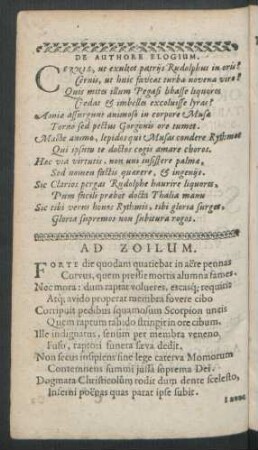 DE AUTHORE ELOGIUM.
CERNIS, ut exultet patrijs Rudolphus in oris?
Cernis, ut huic faveat turba novena viro?
Quis mites illum Pegasi libasse liquores
Credat & imbellem excoluisse lyras?
Aonia assurgunt animosi in corpore Musæ
Torvo sed pectus Gorgonis ore tumet.
Macte animo, lepidos qui Musas condere Rythmos
Qui ipsius te doctos cogis amare choros.
Hoc via virtutis, non uni insistere palmæ,
Sed nomen factis quærere, & ingenijs.
Sic Clarios pergas Rudolphe haurire liquores,
Dum facili præbet docta Thalia manu
Sic tibi vernus honos Rythmis, tibi gloria surget,
Gloria supremos non subitura rogos.
AD ZOILUM.
FORTE die quodam quatiebat in aëre pennas
Curvus, quem pressit mortis alumna fames.
Nec mora: dum raptat volucres, escasq; requirit
Atq; avido properat membra fovere cibo
Corripuit pedibus squamosum Scorpion uncis
Quem raptum rabido stringit in ore cibum.
Ille indignatus, serium per membra veneno
Fuso, raptori funera sæva dedit.
Non secus insipiens sine lege caterva Momorum
Contemnens summi jussa suprema Dei
Dogmata Christicolûm rodit dum dente scelesto,
Inferni pœnas quas parat ipse subit.